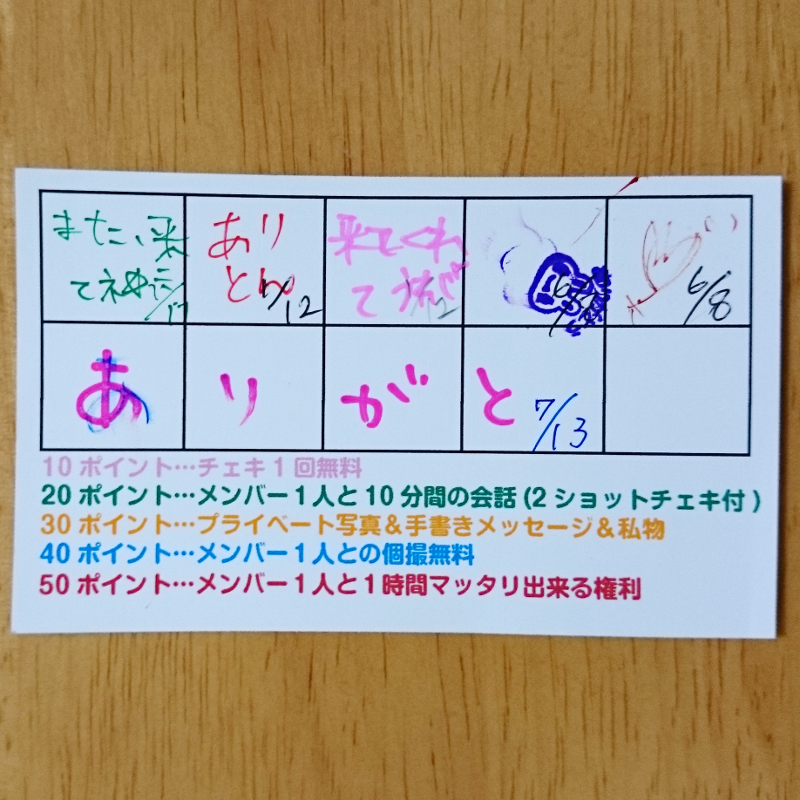 また、来 あり 来てくれ
てネ とん /12 て 6/8
あ り が と 7/13
10 ポイント…チェキ 1 回無料
20 ポイント…メンバー 1 人と 10 分間の会話 (2 ショットチェキ付 )
30 ポイント…プライベート写真＆手書きメッセージ＆私物
40 ポイント…メンバー 1 人との個撮無料
50 ポイント…メンバー 1 人と 1 時間マッタリ出来る権利